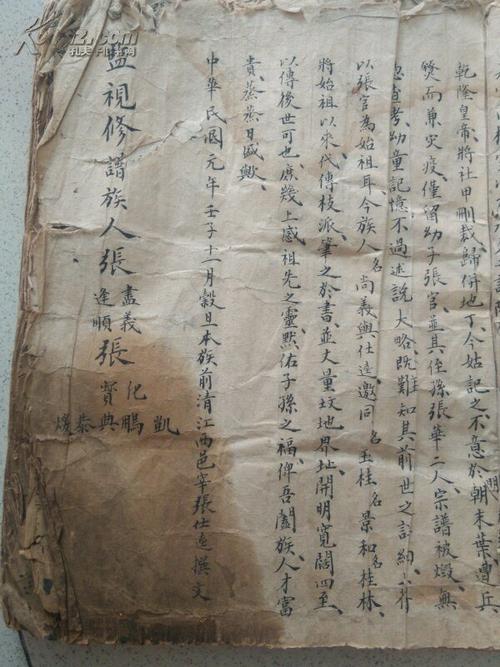 乾隆皇帝、將社甲刪裁、歸併地丁、今姑記之不意於明朝末葉遭兵
燹而兼灾疫、僅留幼子張官、並其侄孫張華二人、宗譜被燬、無
查考、幼童記憶不過述說大略、既難知其前世之詳
以張官為始祖耳今族人名尚義興仕遠邀同名玉桂名景和名桂林、
將始祖以來、代傳枝派、筆之於書、並丈量坟地界址、開明寬闊四至、
以傳後世可也庶幾上感祖先之靈、默佑子孫之福、俾吾闔族人才富
貴、蒸蒸日盛歟、
中華民國元年壬子十一月穀旦本族前清江西邑宰張仕遠撰文
監視修譜族人張盡義逢順張化鵬凱寶典泰